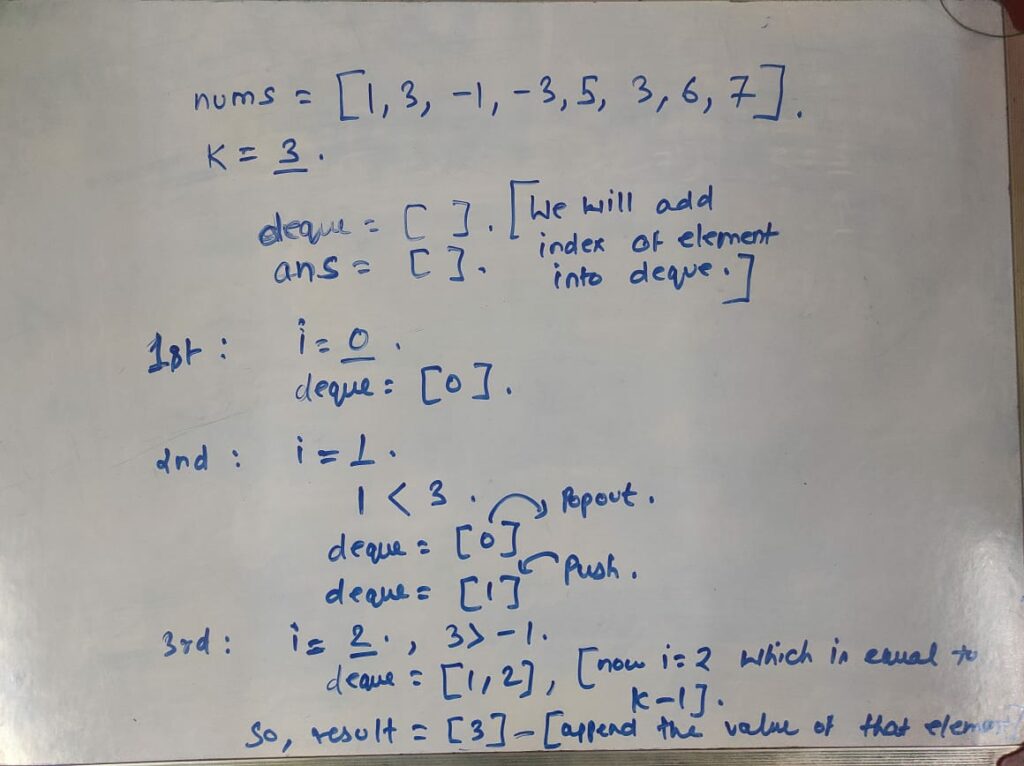 nums = [1, 3, -1, -3, 5, 3, 6, 7].
K = 3.
deque = [ ]. [We will add
index of element
ans = [ ]. into deque.]
1st : i = 0.
deque = [0].
2nd : i = 1.
1 < 3. Popout.
deque = [0]
Push.
deque = [1]
3rd : i = 2., 3 > -1.
deque = [1, 2], [now i = 2 which is equal to
K-1].
So, result = [3] - [append the value of that element